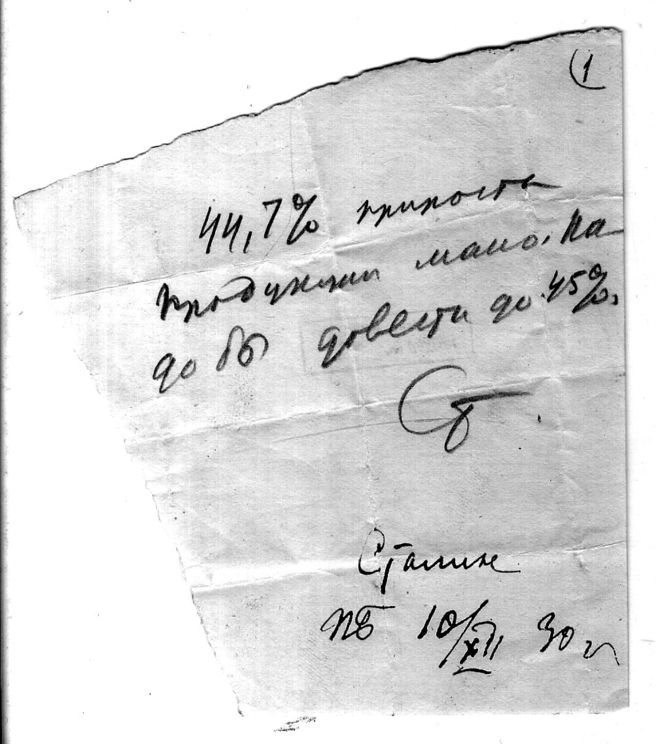 (1
44,7% прироста
продукции мало. На-
до бы довести до 45%.
Ст.
Сталин
ПБ 10/XII 30 г